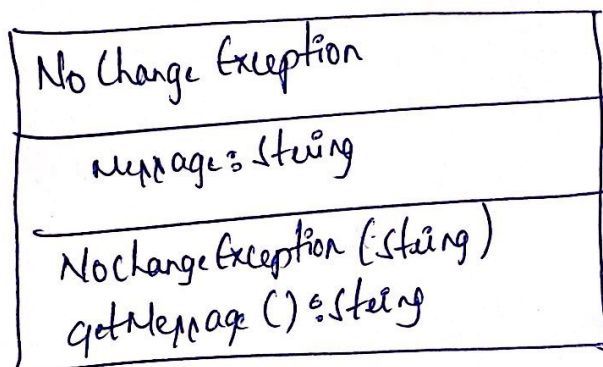 No Change Exception
Message: String
NoChangeException (:String)
getMessage () : String